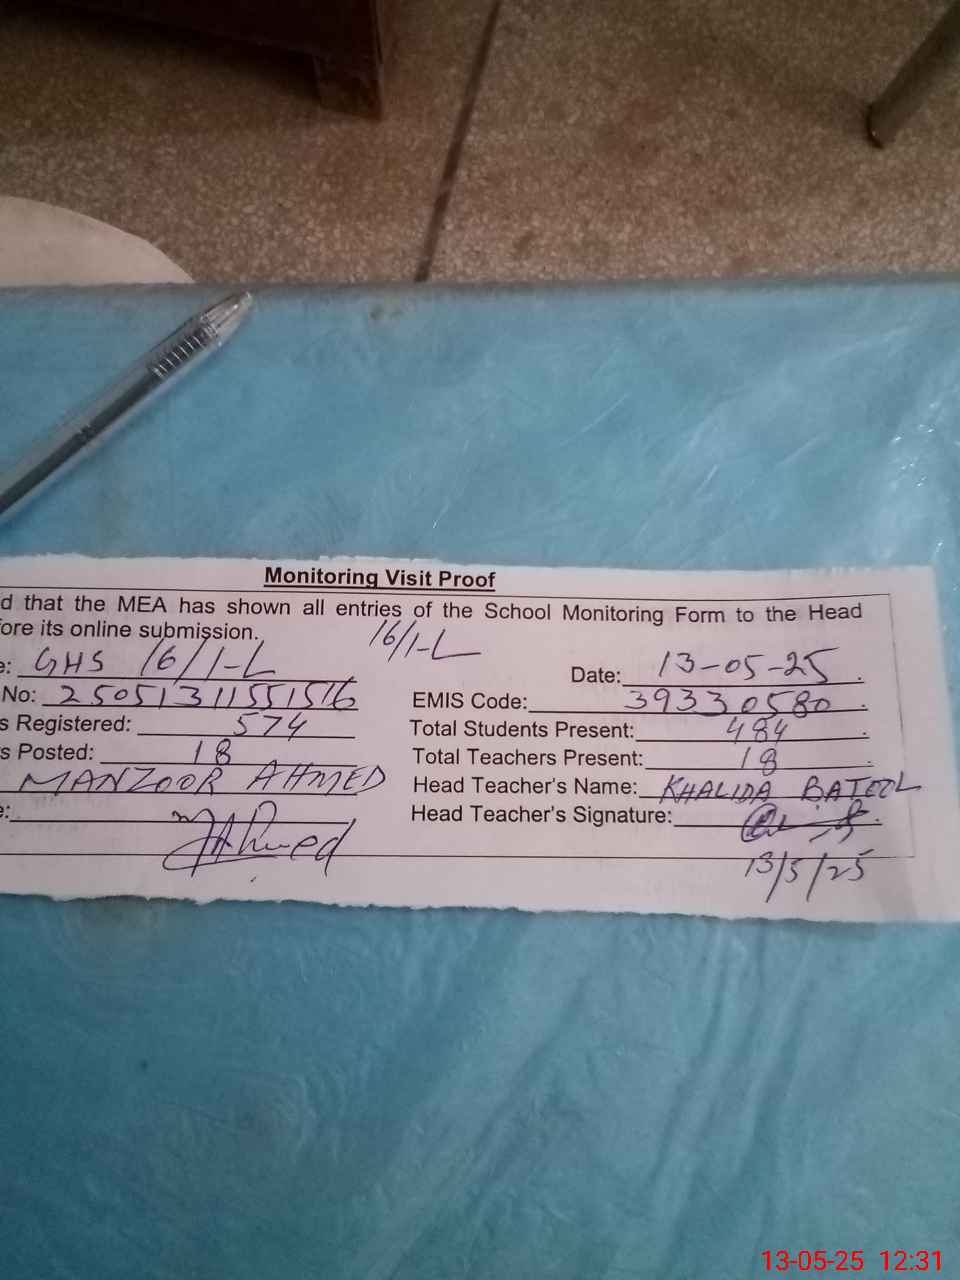 Monitoring Visit Proof
d that the MEA has shown all entries of the School Monitoring Form to the Head
ore its online submission. 16/1-L
e: GHS 16/1-L Date: 13-05-25
No: 25051311551516 EMIS Code: 39330580
s Registered: 574 Total Students Present: 484
s Posted: 18 Total Teachers Present: 18
MANZOOR AHMED Head Teacher's Name: KHALIDA BATOOL
e: Ahmed Head Teacher's Signature:
13/5/25
13-05-25 12:31